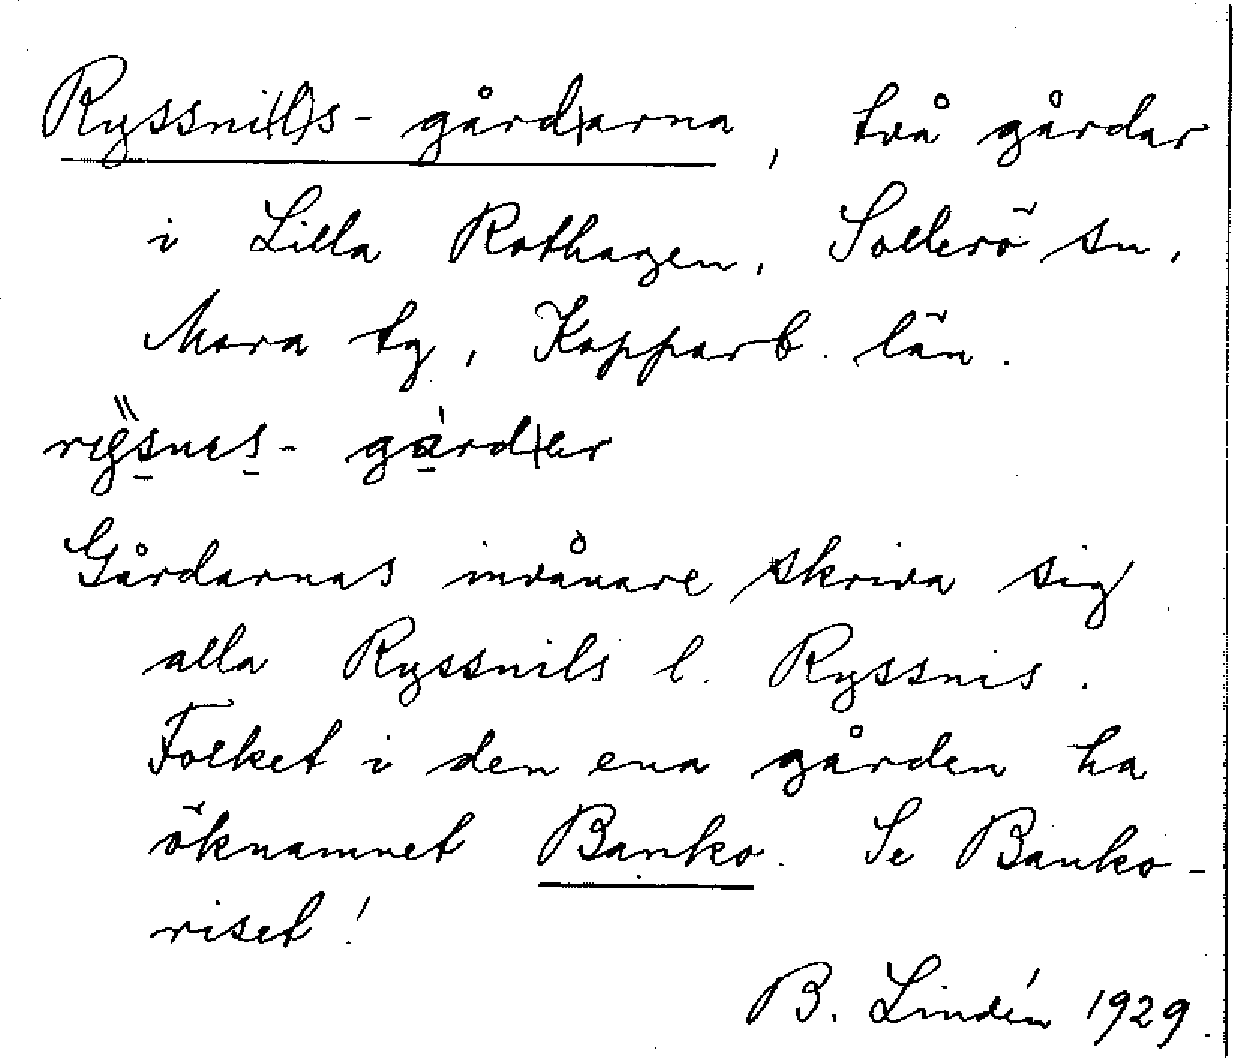 Ryssni(l)s-gård|arna, två gårdar
i Lilla Rothagen, Sollerö sn,
Mora tg, Kopparb. län.
rysnis-gård|er
Gårdarnas invånare skriva sig
alla Ryssnils l. Ryssnis.
Folket i den ena gården ha
öknamnet Banko. Se Banko-
riset!
B. Lindén 1929.